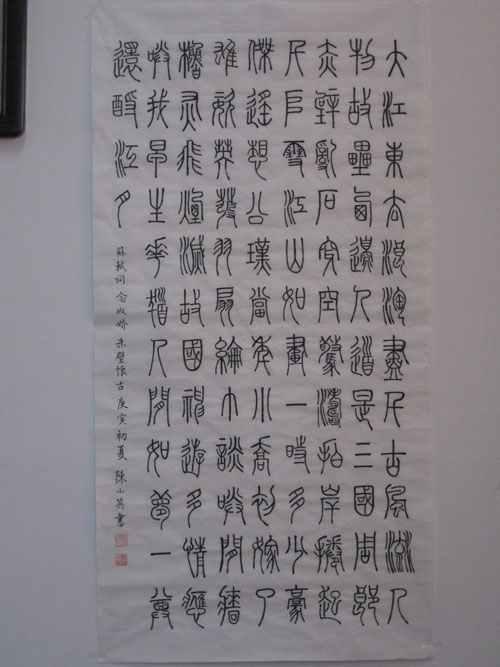 大江東去浪淘盡千古風流人
物故壘西邊人道是三國周郎
赤壁亂石穿空驚濤拍岸捲起
千堆雪江山如畫一時多少豪
傑遙想公瑾當年小喬初嫁了
雄姿英發羽扇綸巾談笑間牆
櫓灰飛煙滅故國神遊多情應
笑我早生華髮人間如夢一尊
還酹江月
蘇軾詞 念奴嬌 赤壁懷古 庚寅初夏 陳小英書